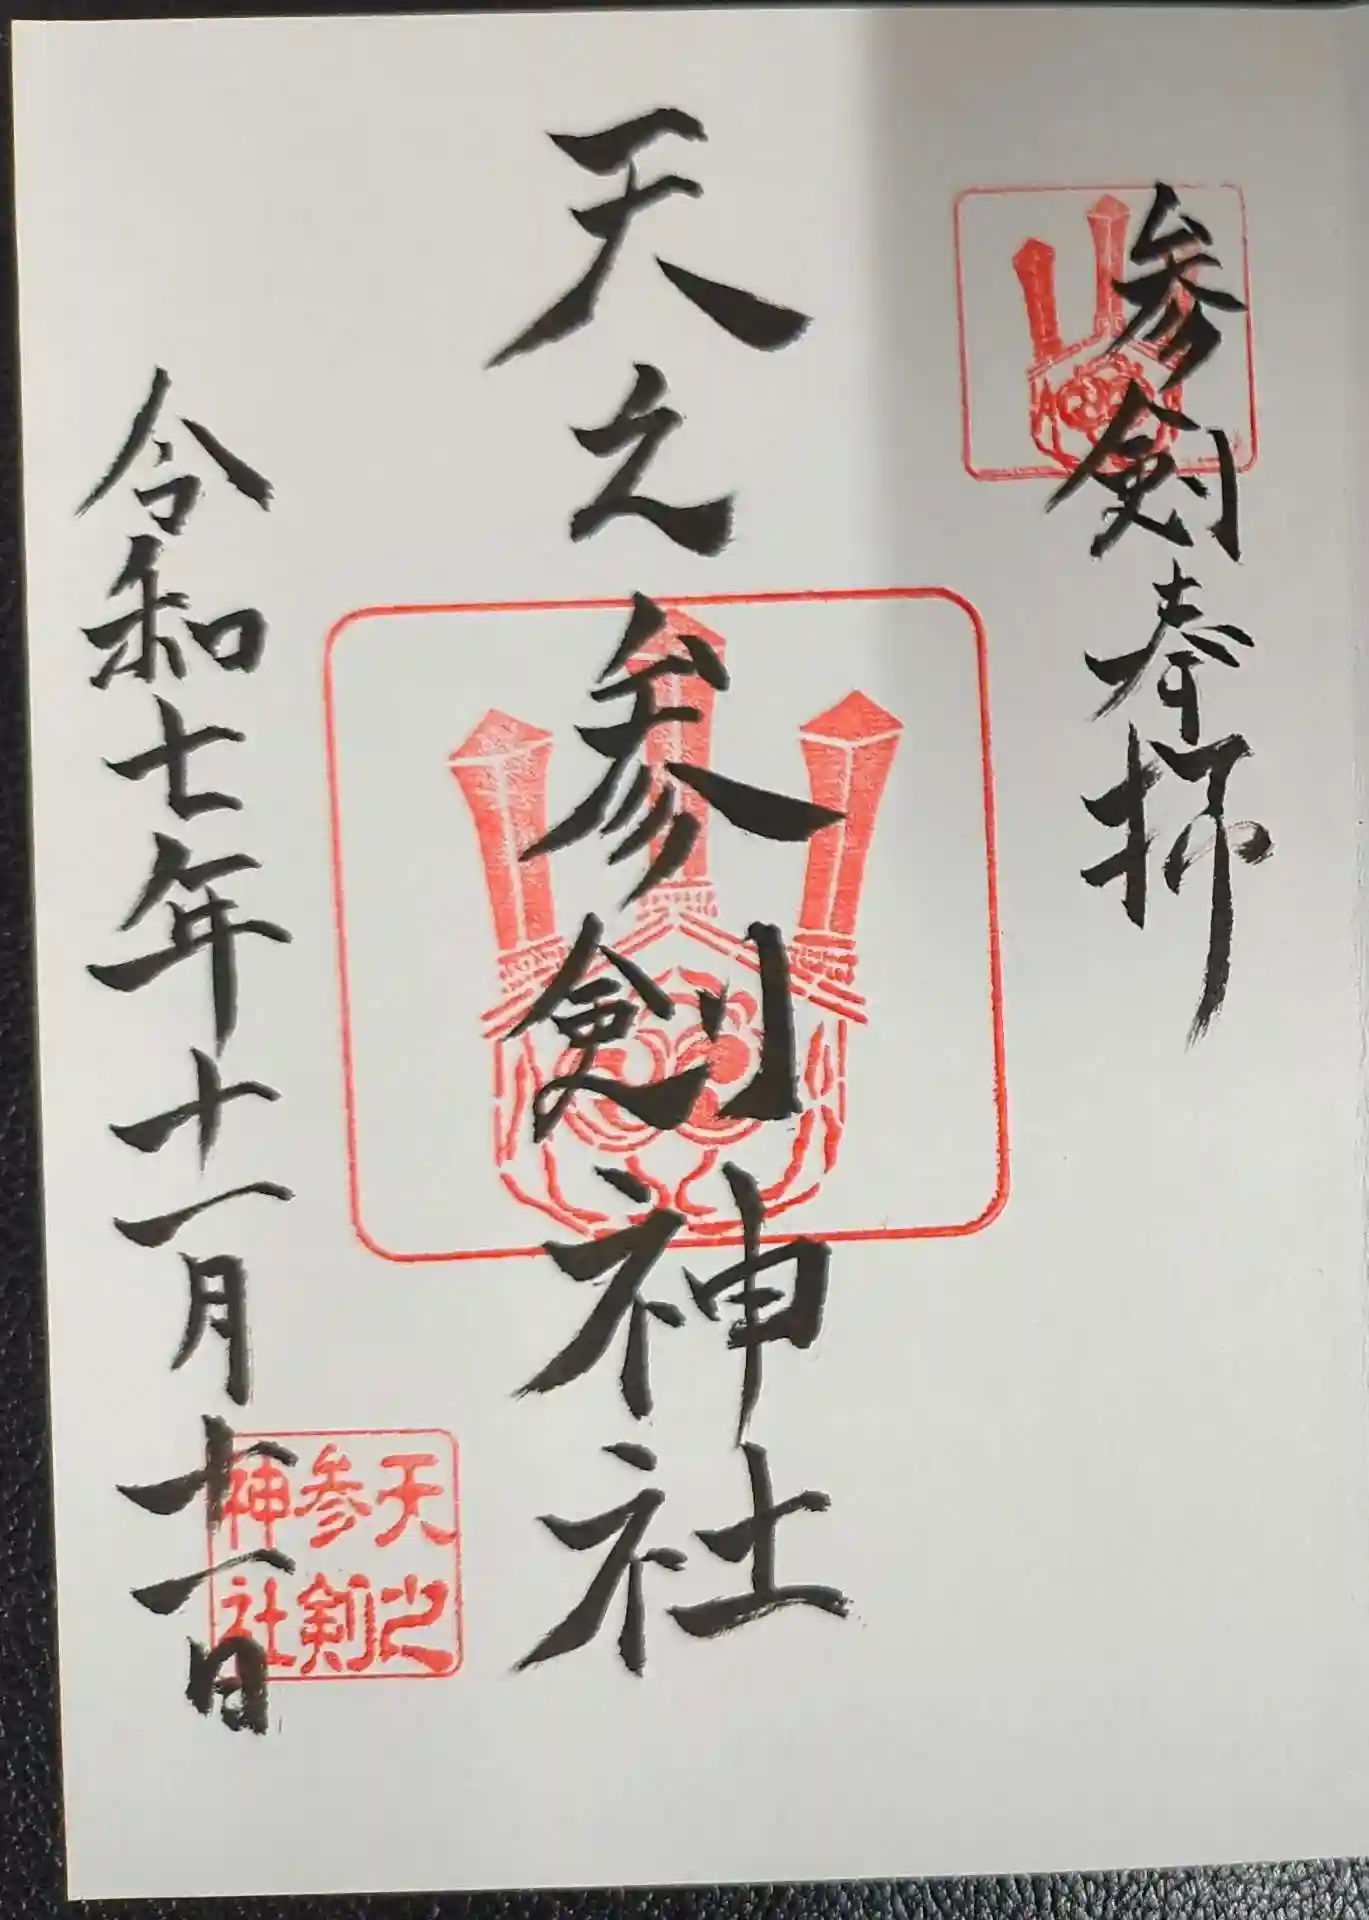 参剣奉拝
天之参剣神社
令和七年十一月十一日
天之
参剣
神社